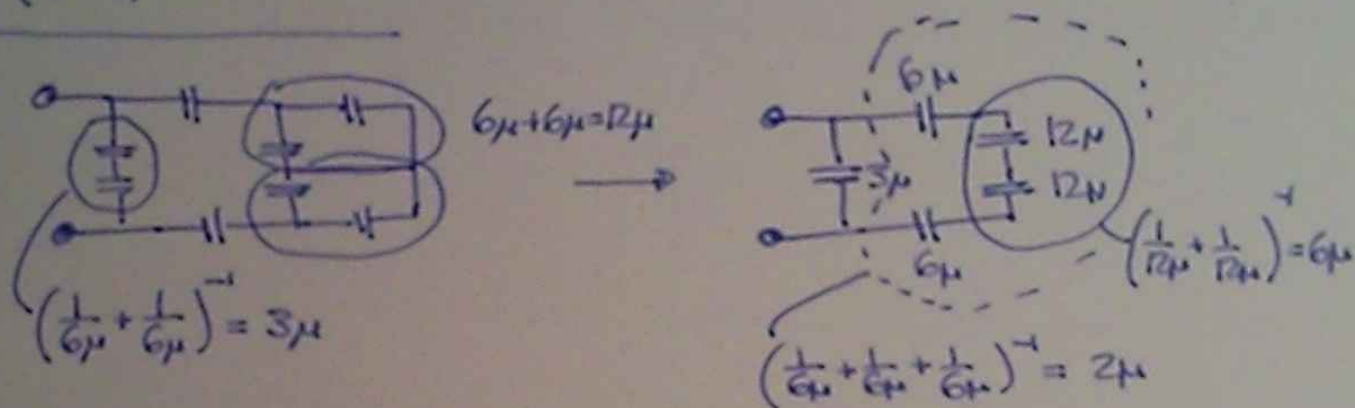 6μ+6μ=12μ
(1/6μ + 1/6μ)⁻¹ = 3μ
6μ
3μ
12μ
12μ
6μ
(1/12μ + 1/12μ)⁻¹ = 6μ
(1/6μ + 1/6μ + 1/6μ)⁻¹ = 2μ